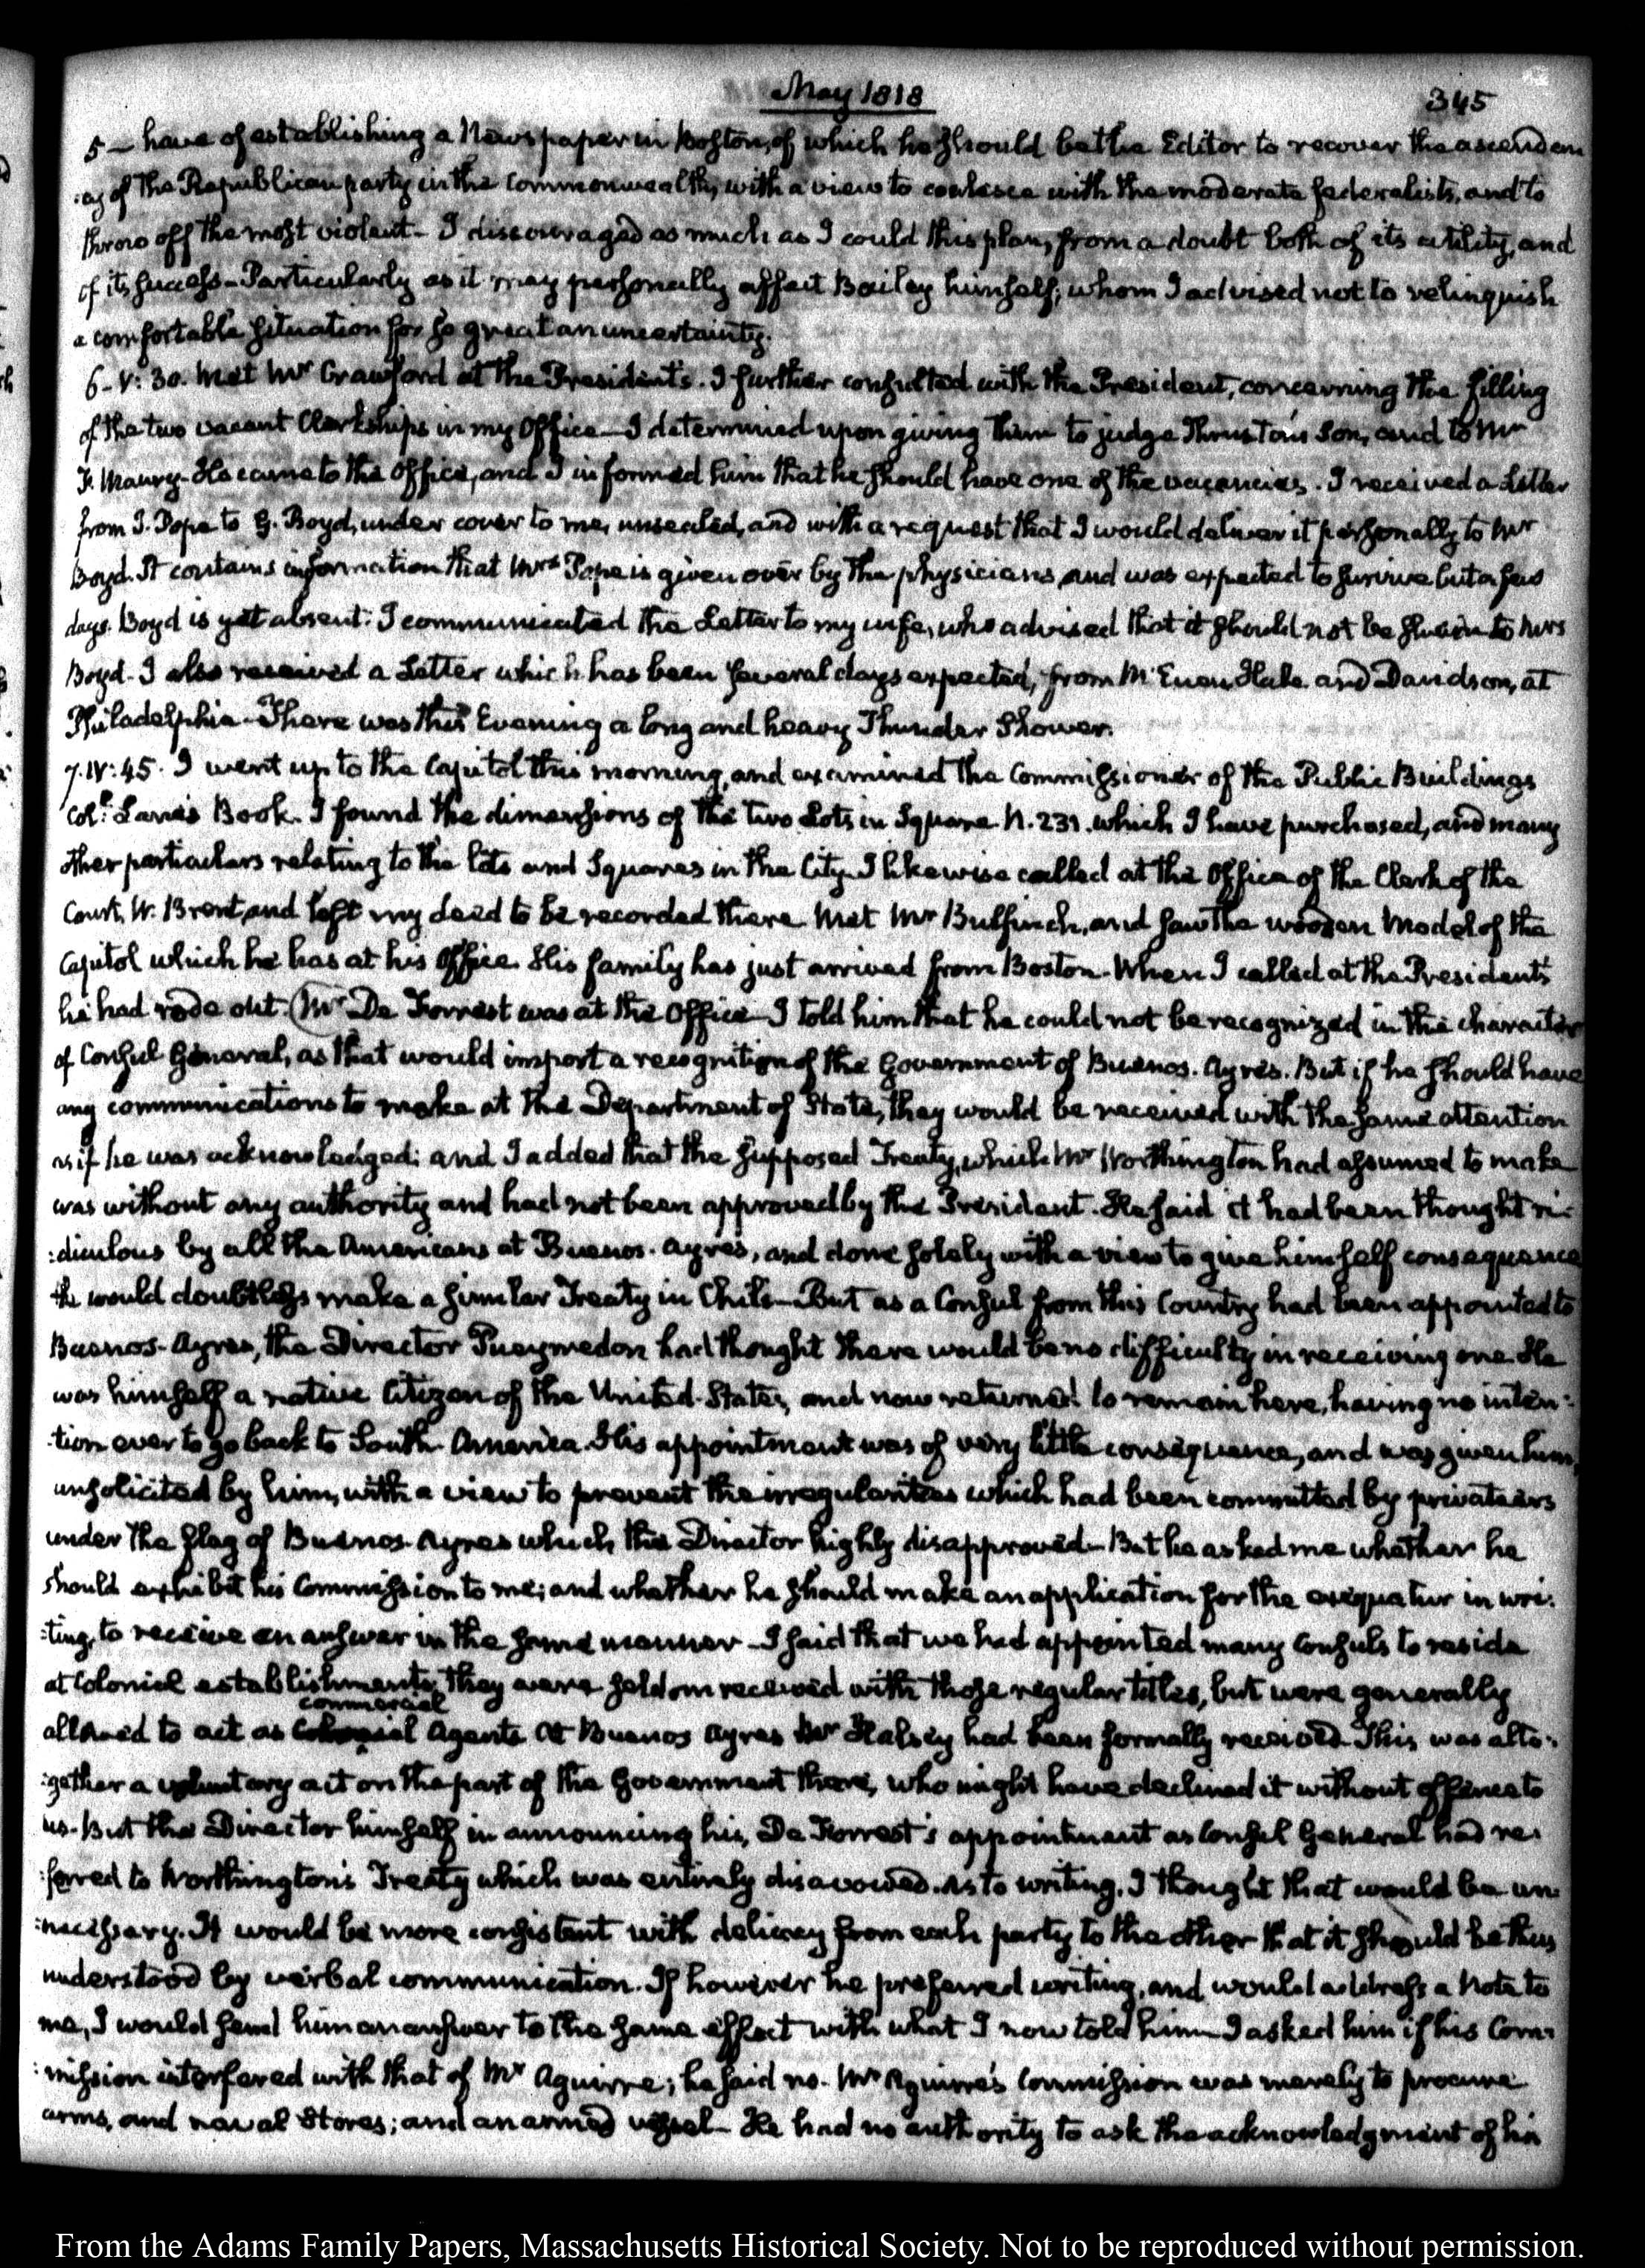 May 1818
345
5 — have of establishing a Newspaper in Boston, of which he should be the Editor to recover the ascendan
:cy of the Republican party in the Commonwealth, with a view to coalesce with the moderate federalists, and to
throw off the most violent — I discouraged as much as I could this plan, from a doubt both of its utility, and
of its success — Particularly as it may personally affect Bailey himself; whom I advised not to relinquish
a comfortable situation for so great an uncertainty.
6 — V: 30. Met Mr Crawford at the President's. I further consulted with the President, concerning the filling
of the two vacant Clerkships in my Office — I determined upon giving them to judge Thruston's Son, and to Mr
F. Maury — He came to the Office, and I informed him that he should have one of the vacancies. I received a Letter
from J. Pope to G. Boyd, under cover to me, unsealed, and with a request that I would deliver it personally to Mr
Boyd. It contains information that Mrs Pope is given over by the physicians, and was expected to survive but a few
days. Boyd is yet absent. I communicated the Letter to my wife, who advised that it should not be shewn to Mrs
Boyd — I also received a Letter which has been several days expected, from McEuen, Hale and Davidson, at
Philadelphia — There was this Evening a long and heavy Thunder Shower.
7. IV: 45. I went up to the Capitol this morning, and examined the Commissioner of the Public Buildings
Coll. Lane's Book. I found the dimensions of the two Lots in Square N. 231. which I have purchased, and many
other particulars relating to the lots and Squares in the City. I likewise called at the Office of the Clerk of the
Court, W. Brent, and left my deed to be recorded there. Met Mr Bulfinch, and saw the wooden Model of the
Capitol which he has at his Office. His family has just arrived from Boston. When I called at the President's
he had rode out. (Mr De Forrest was at the Office — I told him that he could not be recognized in the character
of Consul General, as that would import a recognition of the Government of Buenos-Ayres. But if he should have
any communications to make at the Department of State, they would be received with the same attention
as if he was acknowledged: and I added that the supposed Treaty, which Mr Worthington had assumed to make
was without any authority and had not been approved by the President. He said it had been thought ri:
:diculous by all the Americans at Buenos-Ayres, and done solely with a view to give himself consequence
He would doubtless make a similar Treaty in Chile — But as a Consul from this Country had been appointed to
Buenos-Ayres, the Director Pueyrredon had thought there would be no difficulty in receiving one. He
was himself a native Citizen of the United-States, and now returned to remain here, having no inten:
:tion ever to go back to South-America. His appointment was of very little consequence, and was given him,
unsolicited by him, with a view to prevent the irregularities which had been committed by privateers
under the flag of Buenos-Ayres which the Director highly disapproved — But he asked me whether he
should exhibit his Commission to me; and whether he should make an application for the exequatur in wri:
:ting, to receive an answer in the same manner — I said that we had appointed many Consuls to reside
at Colonial establishments, they were seldom received with those regular titles, but were generally
commercial
allowed to act as Agents. At Buenos Ayres Mr Halsey had been formally received. This was alto:
:gether a voluntary act on the part of the Government there, who might have declined it without offence to
us. But the Director himself in announcing his, De Forrest's appointment as Consul General had re:
:ferred to Worthington's Treaty which was entirely disavowed. As to writing, I thought that would be un:
:necessary. It would be more consistent with delicacy from each party to the other that it should be thus
understood by verbal communication. If however he preferred writing, and would address a Note to
me, I would send him an answer to the same effect with what I now told him — I asked him if his Com:
:mission interfered with that of Mr Aguirre; he said no. Mr Aguirre's Commission was merely to procure
arms, and naval Stores; and an armed vessel — He had no authority to ask the acknowledgment of his
From the Adams Family Papers, Massachusetts Historical Society. Not to be reproduced without permission.